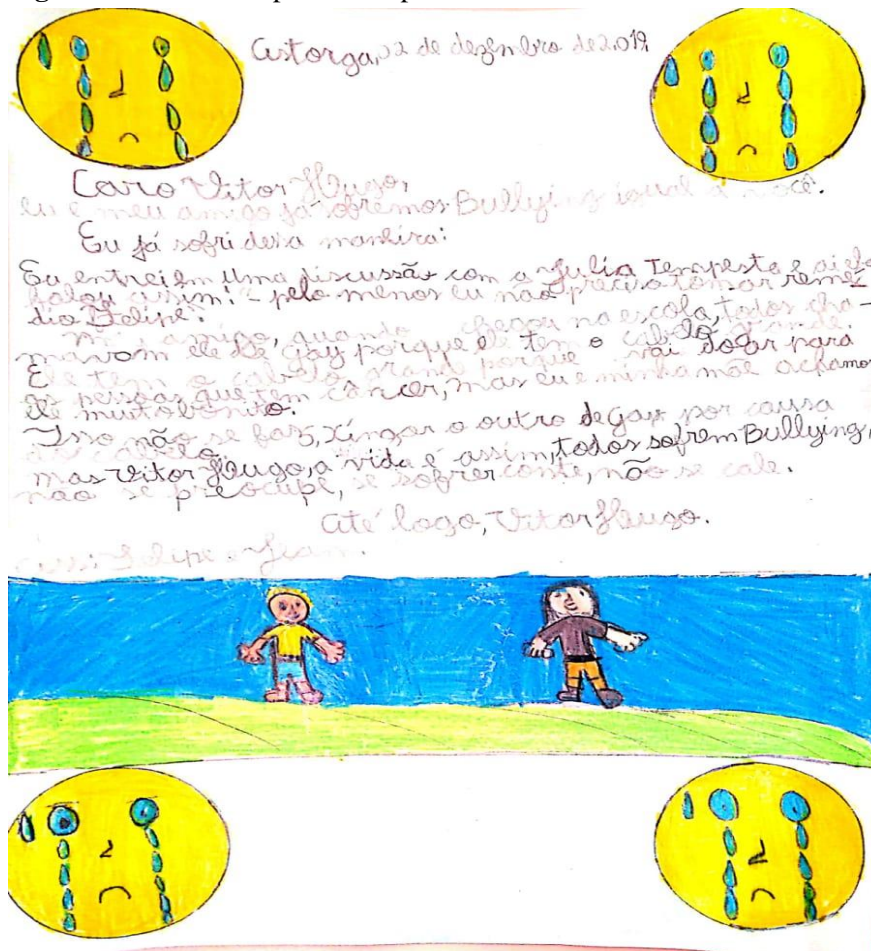 Astorga,02 de dezembro de 2.019,
Caro Vitor Hugo,
eu e meu amigo já sofremos Bullying igual a você.
Eu já sofri desa maneira:
Eu entrei em uma discussão com a Julia Tempesta e ai ela
falou assim: - pelo menos eu não preciso tomar remé-
dio Felipe.
amigo, quando chegou na escola, todos cha-
mavam ele de gay porque ele tem o cabelo grande.
Ele tem o cabelo grande porque vai doar para
as pessoas que tem câncer, mas eu e minha mãe achamos
ele muito bonito.
Isso não se faz, xingar o outro de gay por causa
cabelo,
mas Vitor Hugo, a vida é assim, todos sofrem Bullying,
não se preocupe, se sofrer conte, não se cale.
Até logo, Vitor Hugo.
Felipe e Jean.